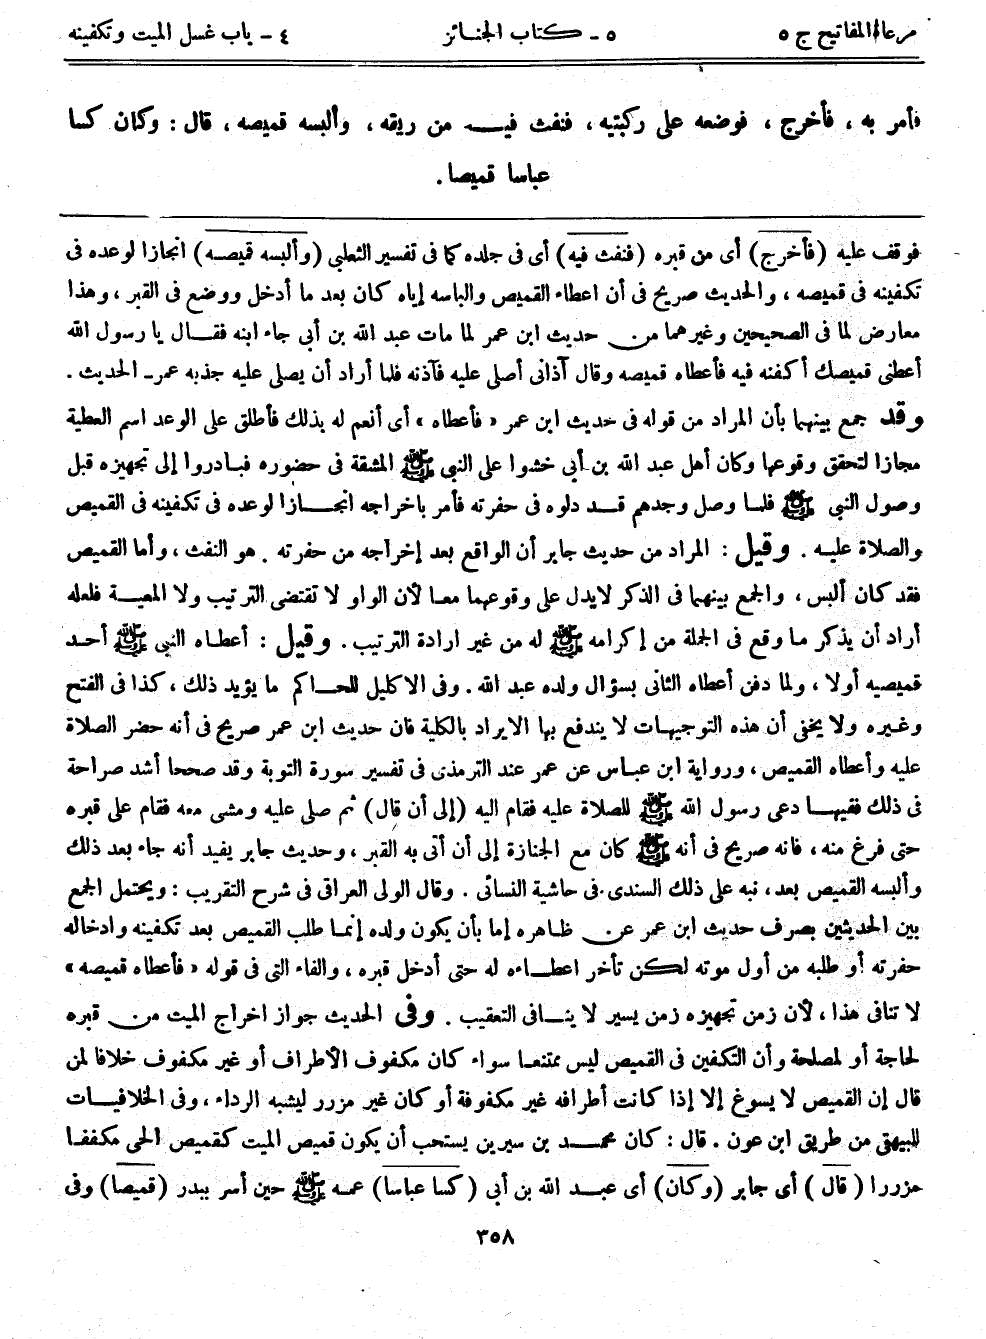 مرعاة المفاتيح ج ٥ ٥ ـ كتاب الجنائز ٤ ـ باب غسل الميت وتكفينه
فأمر به ، فأخرج ، فوضعه على ركبتيه ، فنفث فيه من ريقه ، وألبسه قميصه ، قال : وكان كسا
عباسا قميصا .
فوقف عليه (فأخرج) أى من قبره (فنفث فيه) أى فى جلده كما فى تفسير الثعلبي (وألبسه قميصه) انجازا لوعده فى
تكفينه فى قميصه ، والحديث صريح فى أن اعطاء القميص والباسه إياه كان بعد ما أدخل ووضع فى القبر ، وهذا
معارض لما فى الصحيحين وغيرهما من حديث ابن عمر لما مات عبد الله بن أبي جاء ابنه فقال يا رسول الله
أعطنى قميصك أكفنه فيه فأعطاه قميصه وقال آذانى أصلى عليه فآذنه فلما أراد أن يصلى عليه جذبه عمر ـ الحديث .
وقد جمع بينهما بأن المراد من قوله فى حديث ابن عمر « فأعطاه » أى أنعم له بذلك فأطلق على الوعد اسم العطية
مجازا لتحقق وقوعها وكان أهل عبد الله بن أبي خشوا على النبي ﷺ المشقة فى حضوره فبادروا إلى تجهيزه قبل
وصول النبى ﷺ فلما وصل وجدهم قد دلوه فى حفرته فأمر باخراجه انجازا لوعده فى تكفينه فى القميص
والصلاة عليه . وقيل : المراد من حديث جابر أن الواقع بعد إخراجه من حفرته . هو النفث ، وأما القميص
فقد كان ألبس ، والجمع بينهما فى الذكر لايدل على وقوعهما معا لأن الواو لا تقتضى الترتيب ولا المعية فلعله
أراد أن يذكر ما وقع فى الجملة من إكرامه ﷺ له من غير ارادة الترتيب . وقيل : أعطاه النبى ﷺ أحد
قميصيه أولا ، ولما دفن أعطاه الثانى بسؤال ولده عبد الله . وفى الاكليل للحاكم ما يؤيد ذلك ، كذا فى الفتح
وغيره ولا يخفى أن هذه التوجيهات لا يندفع بها الايراد بالكلية فان حديث ابن عمر صريح فى أنه حضر الصلاة
عليه وأعطاه القميص ، ورواية ابن عباس عن عمر عند الترمذى فى تفسير سورة التوبة وقد صححا أشد صراحة
فى ذلك ففيها دعى رسول الله ﷺ للصلاة عليه فقام اليه (إلى أن قال) ثم صلى عليه ومشى معه فقام على قبره
حتى فرغ منه ، فانه صريح فى أنه ﷺ كان مع الجنازة إلى أن أتى به القبر ، وحديث جابر يفيد أنه جاء بعد ذلك
وألبسه القميص بعد ، نبه على ذلك السندى فى حاشية النسائى . وقال الولى العراقى فى شرح التقريب : ويحتمل الجمع
بين الحديثين بصرف حديث ابن عمر عن ظاهره إما بأن يكون ولده إنما طلب القميص بعد تكفينه وادخاله
حفرته أو طلبه من أول موته لكن تأخر اعطاءه له حتى أدخل قبره ، والفاء التى فى قوله « فأعطاه قميصه »
لا تنافى هذا ، لأن زمن تجهيزه زمن يسير لا ينافى التعقيب . وفى الحديث جواز اخراج الميت من قبره
لحاجة أو لمصلحة وأن التكفين فى القميص ليس ممتنعا سواء كان مكفوف الأطراف أو غير مكفوف خلافا لمن
قال إن القميص لا يسوغ إلا إذا كانت أطرافه غير مكفوفة أو كان غير مزرر ليشبه الرداء ، وفى الخلافيات
للبيهقى من طريق ابن عون . قال : كان محمد بن سيرين يستحب أن يكون قميص الميت كقميص الحى مكففا
مزررا (قال) أى جابر (وكان) أى عبد الله بن أبي (كسا عباسا) عمه ﷺ حين أسر ببدر (قميصا) وفى
٣٥٨